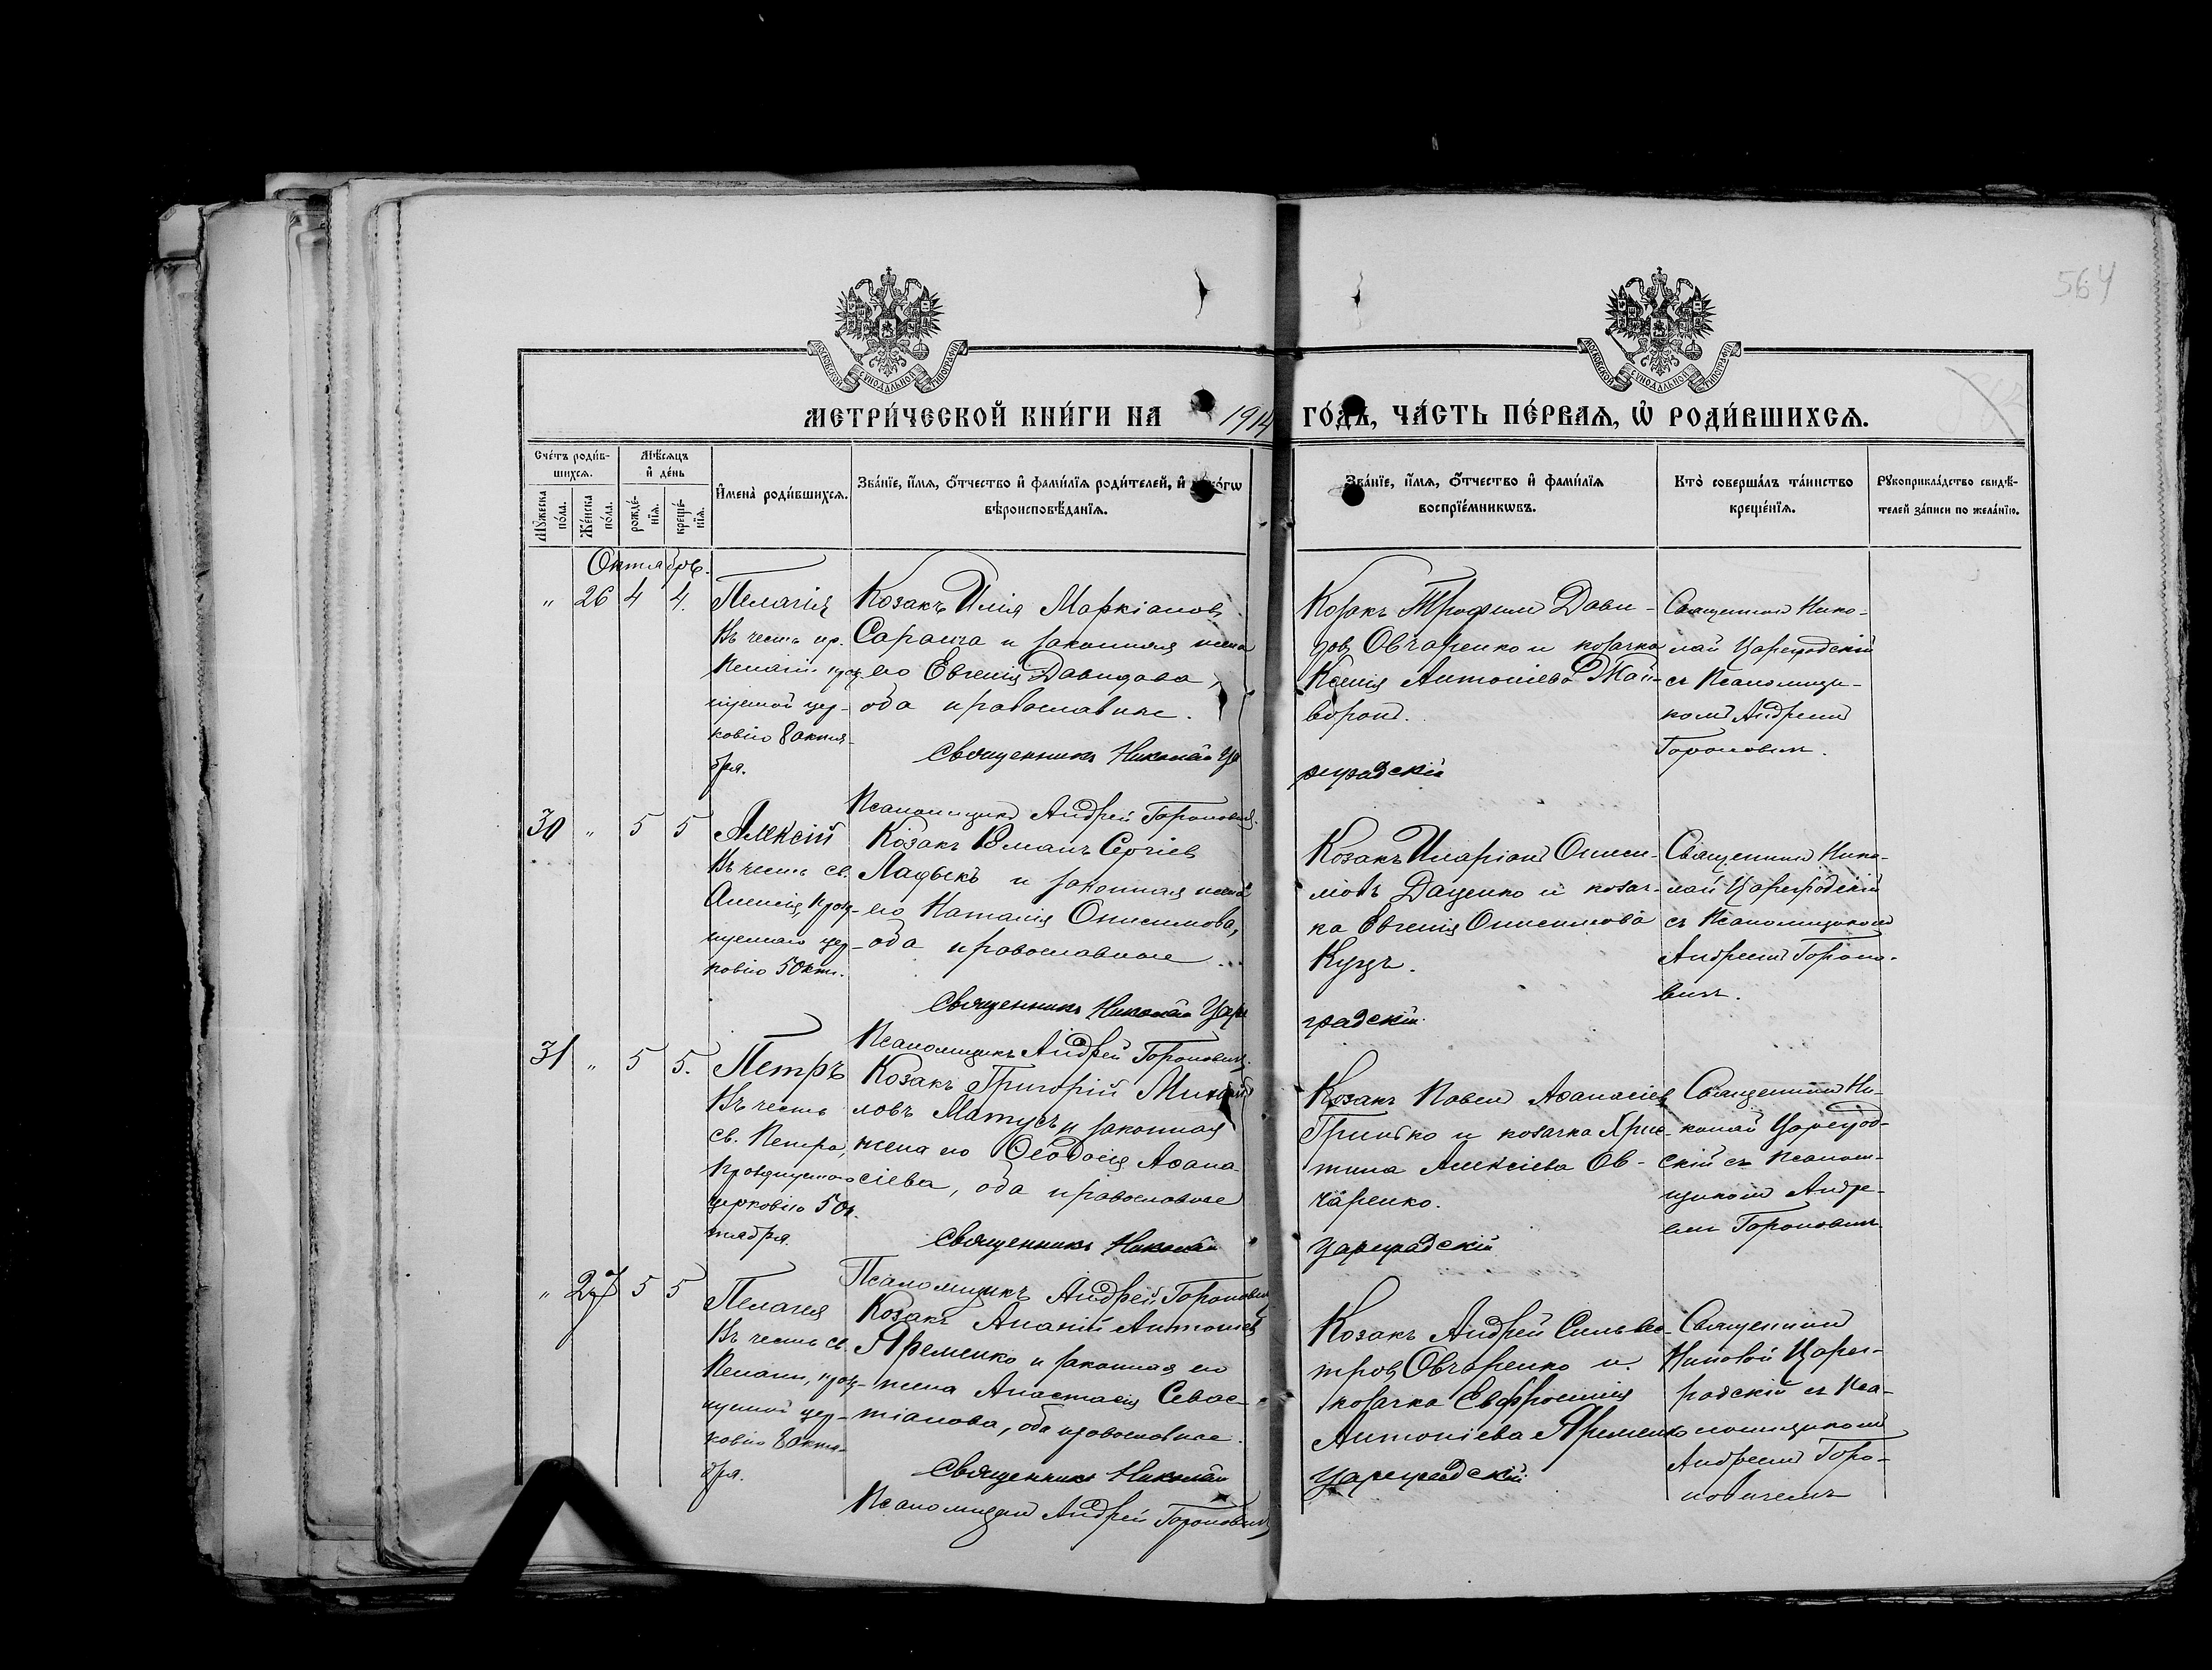 564
МОСКОВСКОЙ СѴНОДАЛЬНОЙ ТИПОГРАФІИ
МОСКОВСКОЙ СѴНОДАЛЬНОЙ ТИПОГРАФІИ
МЕТРИ́ЧЕСКОЙ КНИ́ГИ НА 1914 ГО́ДЪ, ЧА́СТЬ ПЕ́РВАѦ, Ѡ҆ РОДИ́ВШИХСѦ.
Сче́тъ роди́в-
шихсѧ.
Мѣ́сѧцъ
и҆ де́нь
Мꙋ́жеска
по́ла.
Же́нска
по́ла.
рожде́-
нїѧ.
креще́-
нїѧ.
И҆мена̀ роди́вшихсѧ.
Зва́нїе, и҆́мѧ, ѻ҆́тчество и҆ фами́лїѧ роди́телей, и҆ како́гѡ
вѣроисповѣ́данїѧ.
Зва́нїе, и҆́мѧ, ѻ҆́тчество и҆ фами́лїѧ
воспрїе́мникѡвъ.
Кто̀ соверша́лъ та́инство
креще́нїѧ.
Рꙋкоприкла́дство свидѣ́-
телей за́писи по жела́нїю.
Октябрь.
" 26 4 4.
Пелагія
Въ честь пр.
Пелагіи празд-
нуемой цер-
ковію 8 октя-
бря.
Козакъ Илія Маркіановъ
Сарапча и законная жена
его Евгенія Давидова,
оба православные.
Священникъ Николай Ца
Псаломщикъ Андрей Горонович.
Козакъ Трофимъ Дави-
довъ Овчаренко и козачка
Ксенія Антоніева Жай-
воронъ.
реградскій
Священникъ Нико-
лай Цареградскій
съ Псаломщи-
комъ Андреемъ
Гороновичем.
30 " 5 5
Алексій
Въ честь св.
Алексія, празд-
нуемаго цер-
ковію 5 Окт.
Козакъ Романъ Сергіевъ
Ладыкъ и законная жена
его Наталія Онисимова,
оба православные
Священникъ Николай Царе
Псаломщикъ Андрей Горонович.
Козакъ Иларіонъ Ониси-
мовъ Даценко и козач-
ка Евгенія Онисимова
Куцъ.
градскій
Священникъ Нико-
лай Цареградскій
съ Псаломщикомъ
Андреемъ Гороно-
вичем.
31 " 5 5.
Петръ
Въ честь
св. Петра,
празднуемаго
церковію 5 Ок-
тября.
Козакъ Григорій Михай-
ловъ Матусъ и законная
жена его Ѳеодосія Аѳана-
сіева, оба православные
Священникъ Николай
Псаломщикъ Андрей Горонович
Козакъ Павелъ Аѳанасіевъ
Гринько и козачка Хрис-
тина Алексіева Ов-
чаренко.
Цареградскій
Священникъ Ни-
колай Цареград-
скій съ Псалом-
щикомъ Андре-
емъ Гороновичем.
" 27 5 5
Пелагея
Въ честь св.
Пелагіи, празд-
нуемой цер-
ковію 8 Октя-
бря.
Козакъ Ананій Антоніевъ
Яременко и законная его
жена Анастасія Севас-
тіанова, оба православные.
Священникъ Николай
Псаломщикъ Андрей Горонович
Козакъ Андрей Сильвес-
тровъ Овчаренко и
козачка Евфросинія
Антоніева Яременко
Цареградскій
Священникъ
Николай Царег-
радскій съ Пса-
ломщикомъ
Андреемъ Горо-
новичемъ